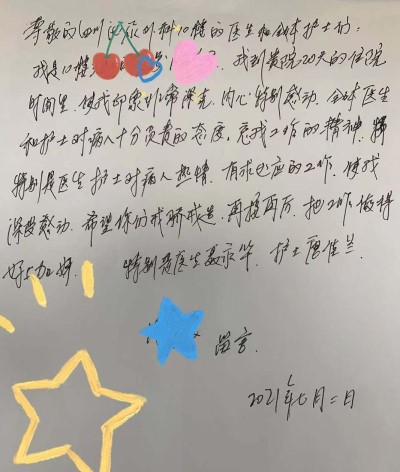 尊敬的四川 外科10楼的医生和全体护士们:
我是10楼 我到贵院20天的住院
时间里,使我印象非常深光,内心特别感动,全体医生
和护士对病人十分负责的态度,忘我工作的精神,特
特别是医生护士对病人热情,有求必应的工作,使我
深受感动,希望你们戒骄戒造,再接再厉,把工作做得
好上加好。 特别是医生聂 护士唐佳兰
留言.
2021年七月二日